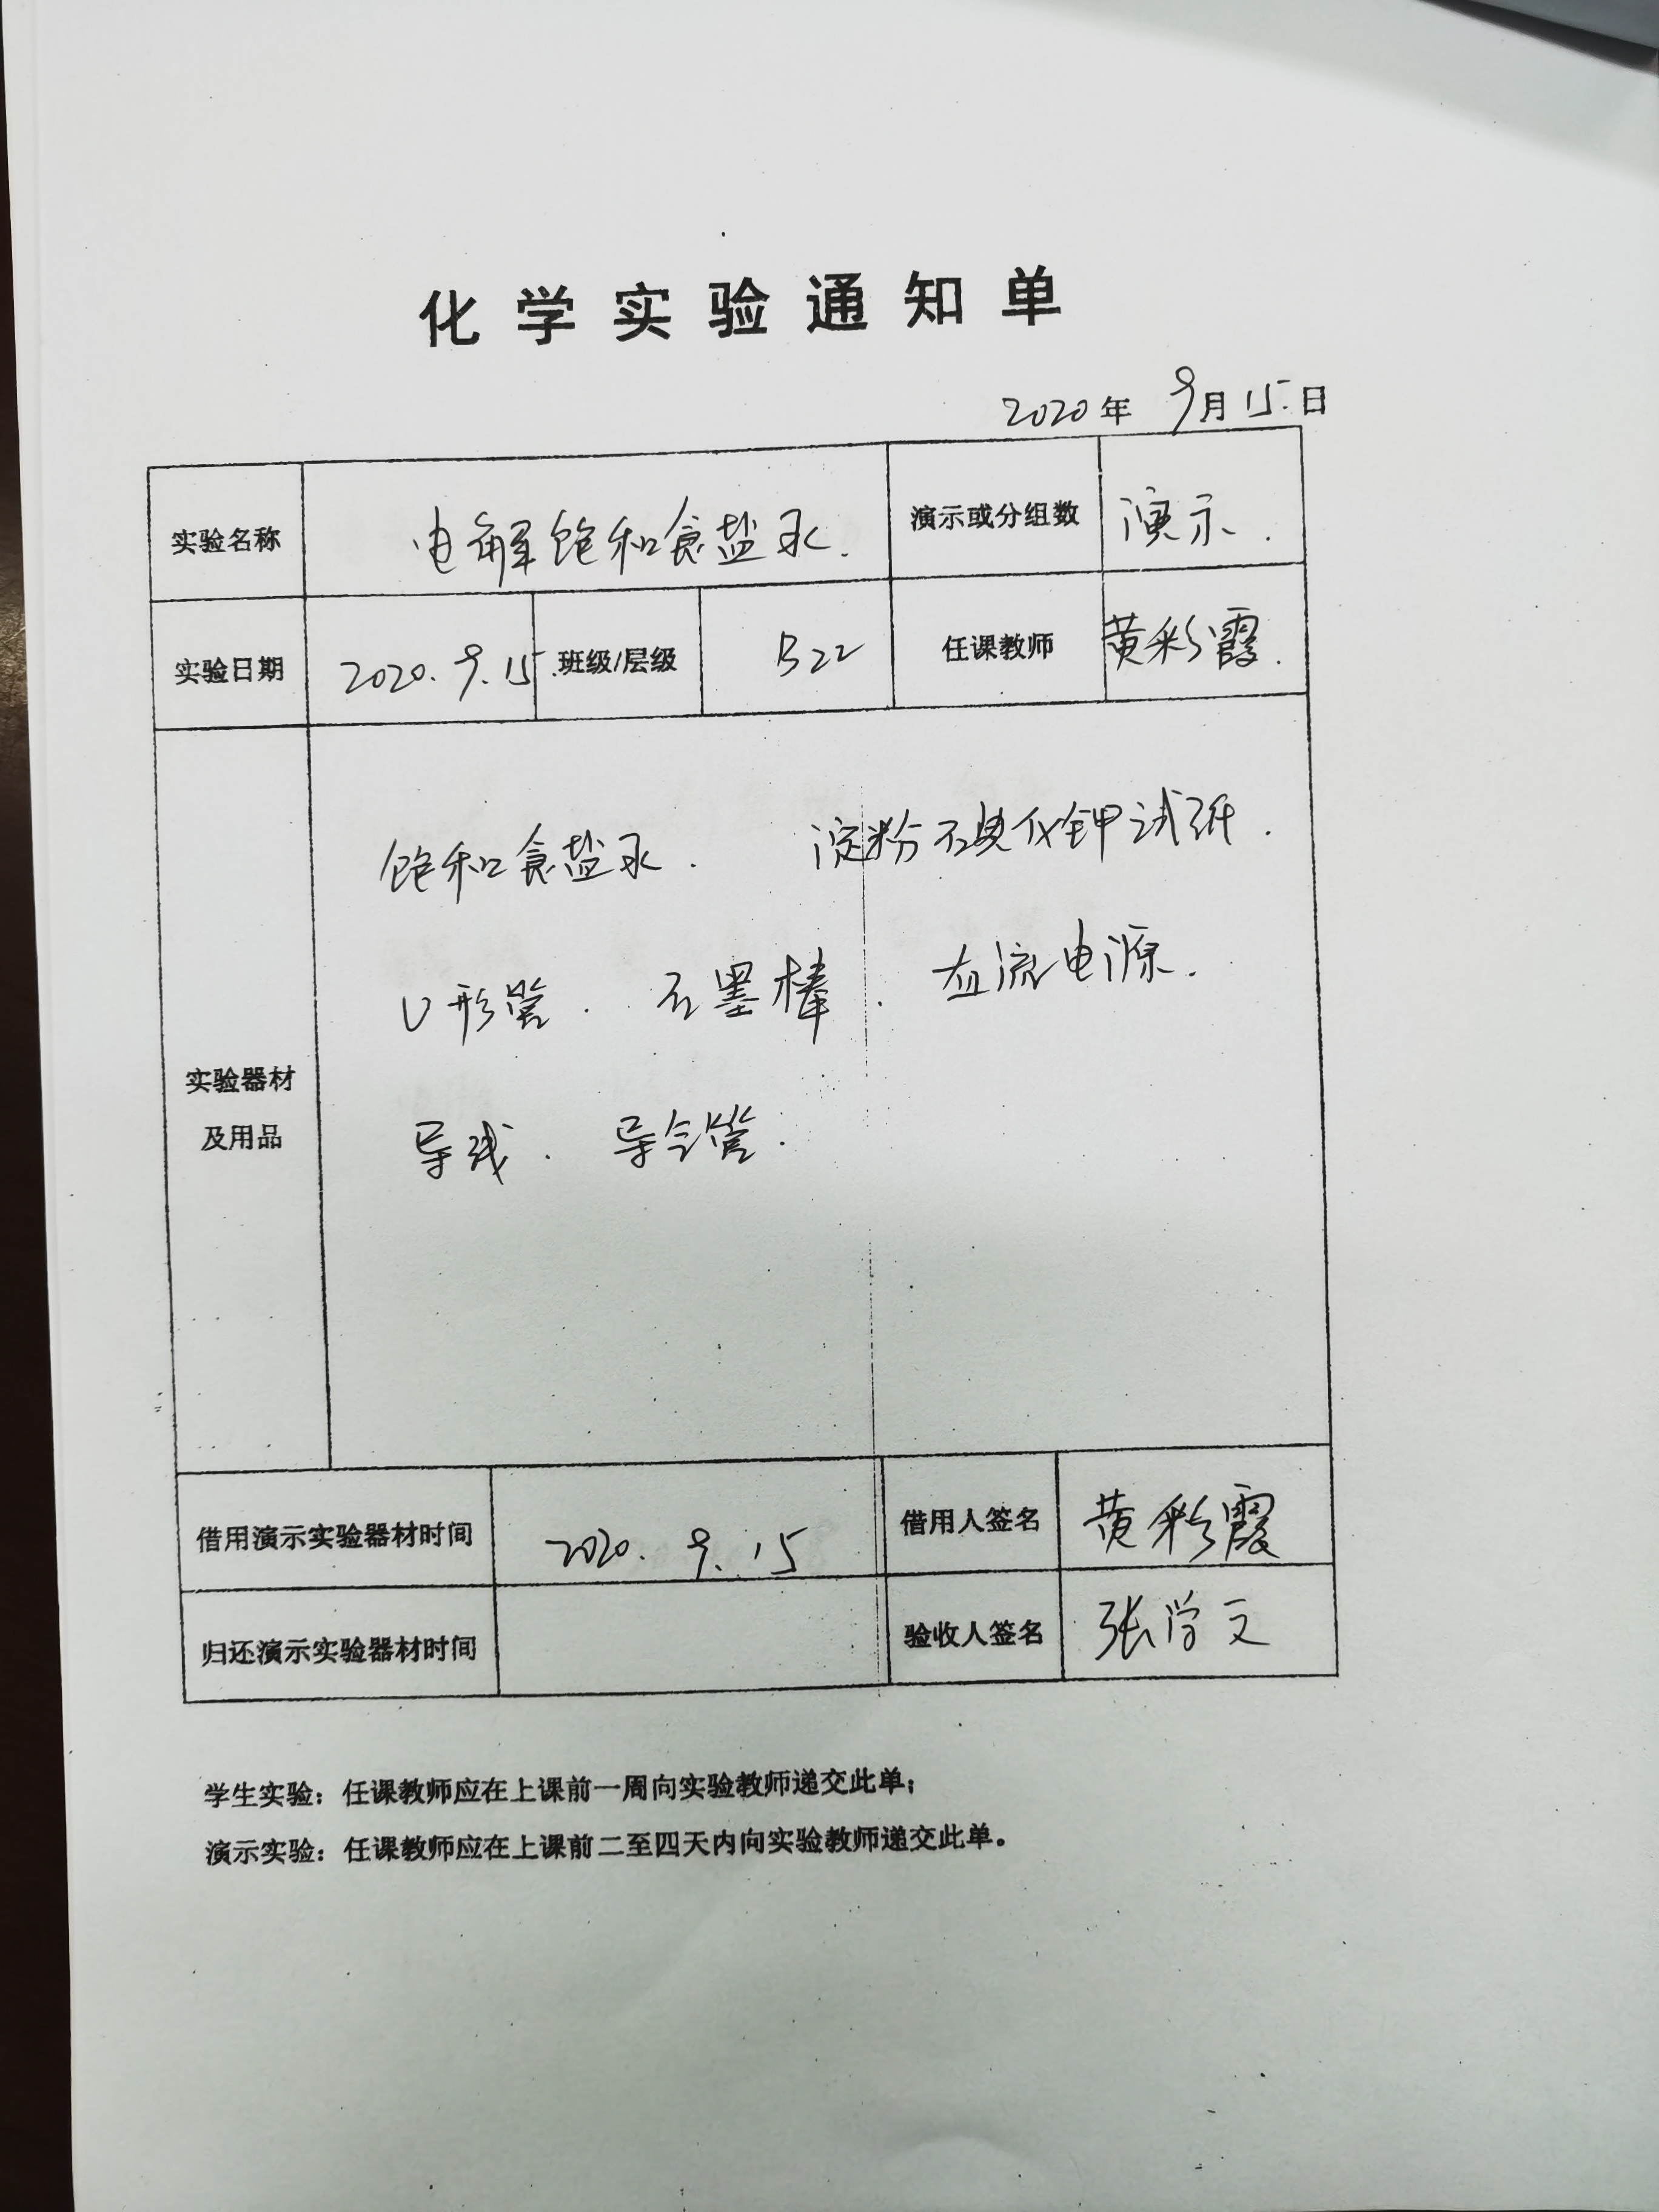 化学实验通知单
2020年 9月15日
实验名称 电解饱和食盐水. 演示或分组数 演示.
实验日期 2020.9.15. 班级/层级 B22 任课教师 黄彩霞.
饱和食盐水. 淀粉碘化钾试纸.
U形管. 石墨棒. 直流电源.
实验器材
及用品
导线. 导气管.
借用演示实验器材时间 2020.9.15 借用人签名 黄彩霞
归还演示实验器材时间 验收人签名 张学文
学生实验：任课教师应在上课前一周向实验教师递交此单；
演示实验：任课教师应在上课前二至四天内向实验教师递交此单。